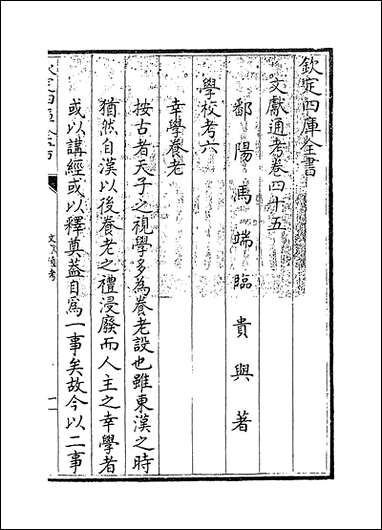 欽定四庫全書
文獻通考卷四十五
鄱陽馬端臨貴與著
學校考六
幸學養老
按古者天子之視學多為養老設也雖東漢之時
猶然自漢以後養老之禮浸廢而人主之幸學者
或以講經或以釋奠蓋自為一事矣故今以二事
欽定四庫全書
文獻通考
一